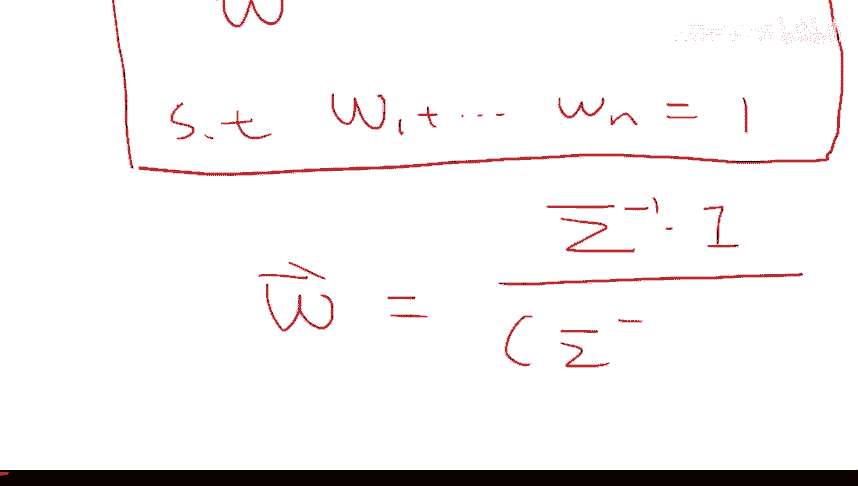 w
s.t w₁+ ... wₙ = 1
Σ⁻¹ · 1
w⃗ =
(Σ⁻